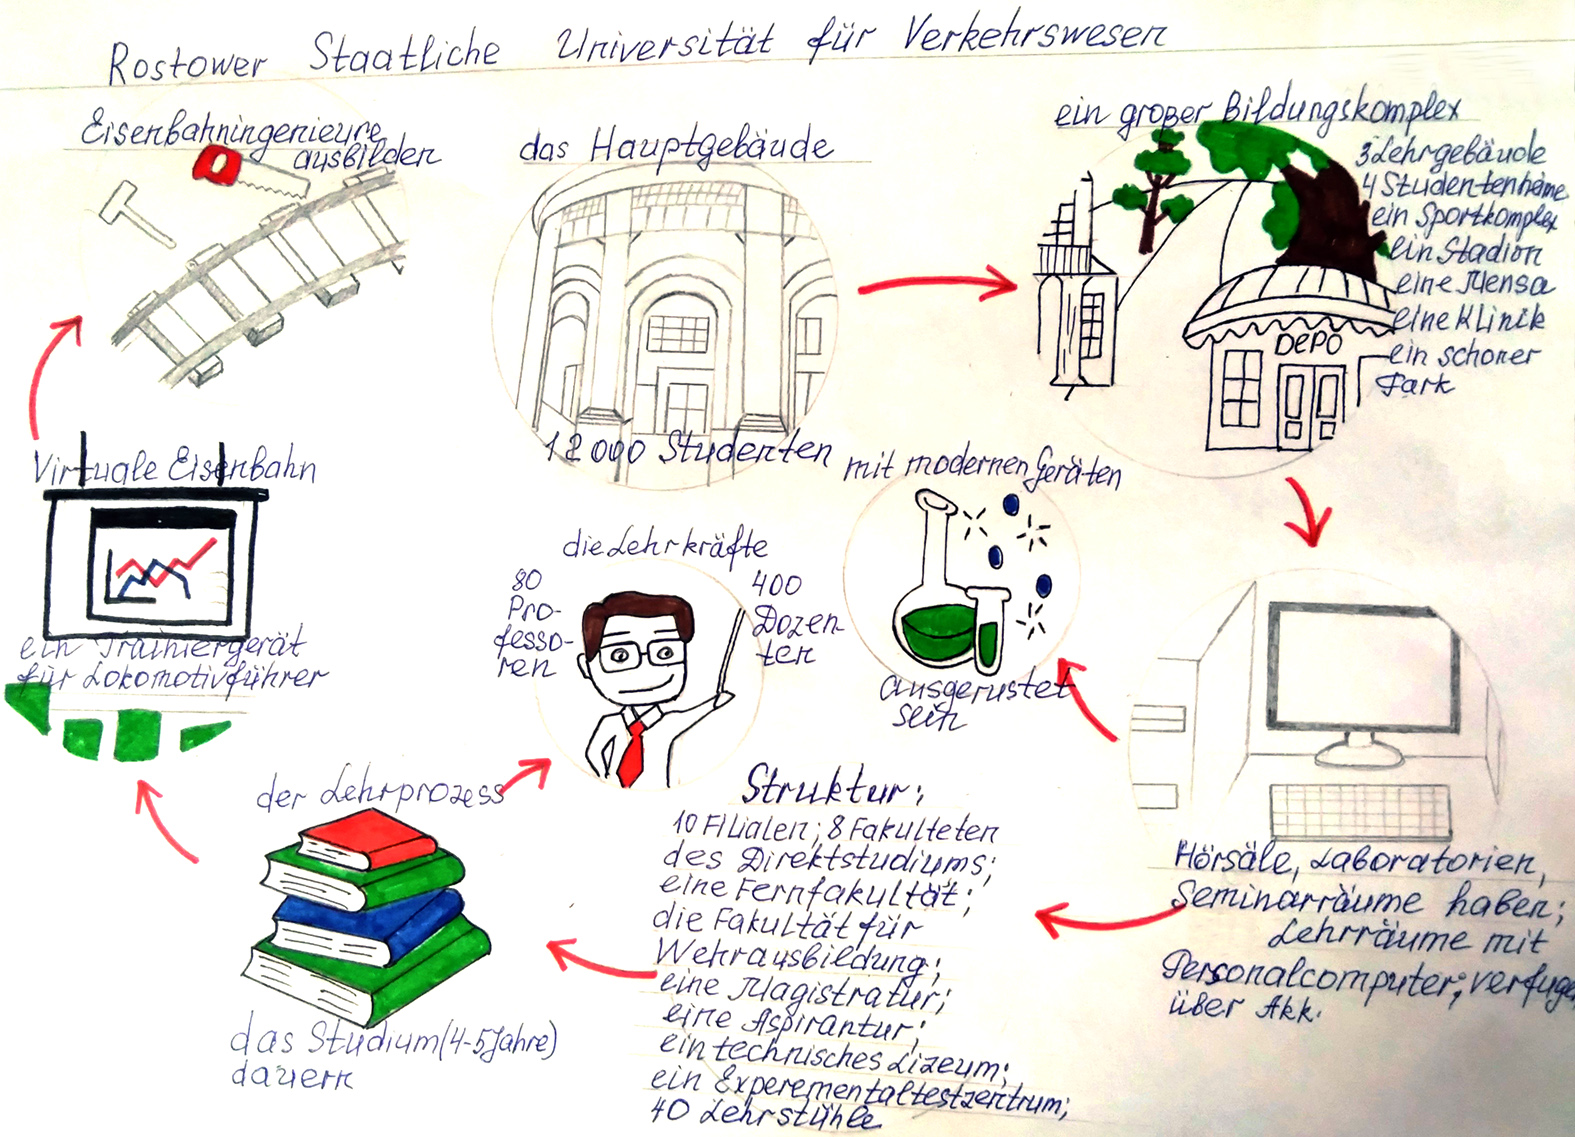 Rostower Staatliche Universität für Verkehrswesen
Eisenbahningenieure
ausbilden
das Hauptgebäude
12000 Studenten
ein großer Bildungskomplex
3 Lehrgebäude
4 Studentenheime
ein Sportkomplex
ein Stadion
eine Mensa
eine Klinik
ein schoner
Park
DEPO
Virtuale Eisenbahn
ein Trainiergerät
für Lokomotivführer
die Lehrkräfte
80
Pro-
fesso-
ren
400
Dozen-
ten
mit modernen Geräten
ausgerustet
sein
der Lehrprozess
das Studium (4-5 Jahre)
dauern
Struktur:
10 Filialen; 8 Fakulteten
des Direktstudiums;
eine Fernfakultät;
die Fakultät für
Wehrausbildung;
eine Magistratur;
eine Aspirantur;
ein technisches Lizeum;
ein Experementaltestzentrum;
40 Lehrstühle
Hörsäle, Laboratorien,
Seminarräume haben;
Lehrräume mit
Personalcomputer; verfugen
über Akk.